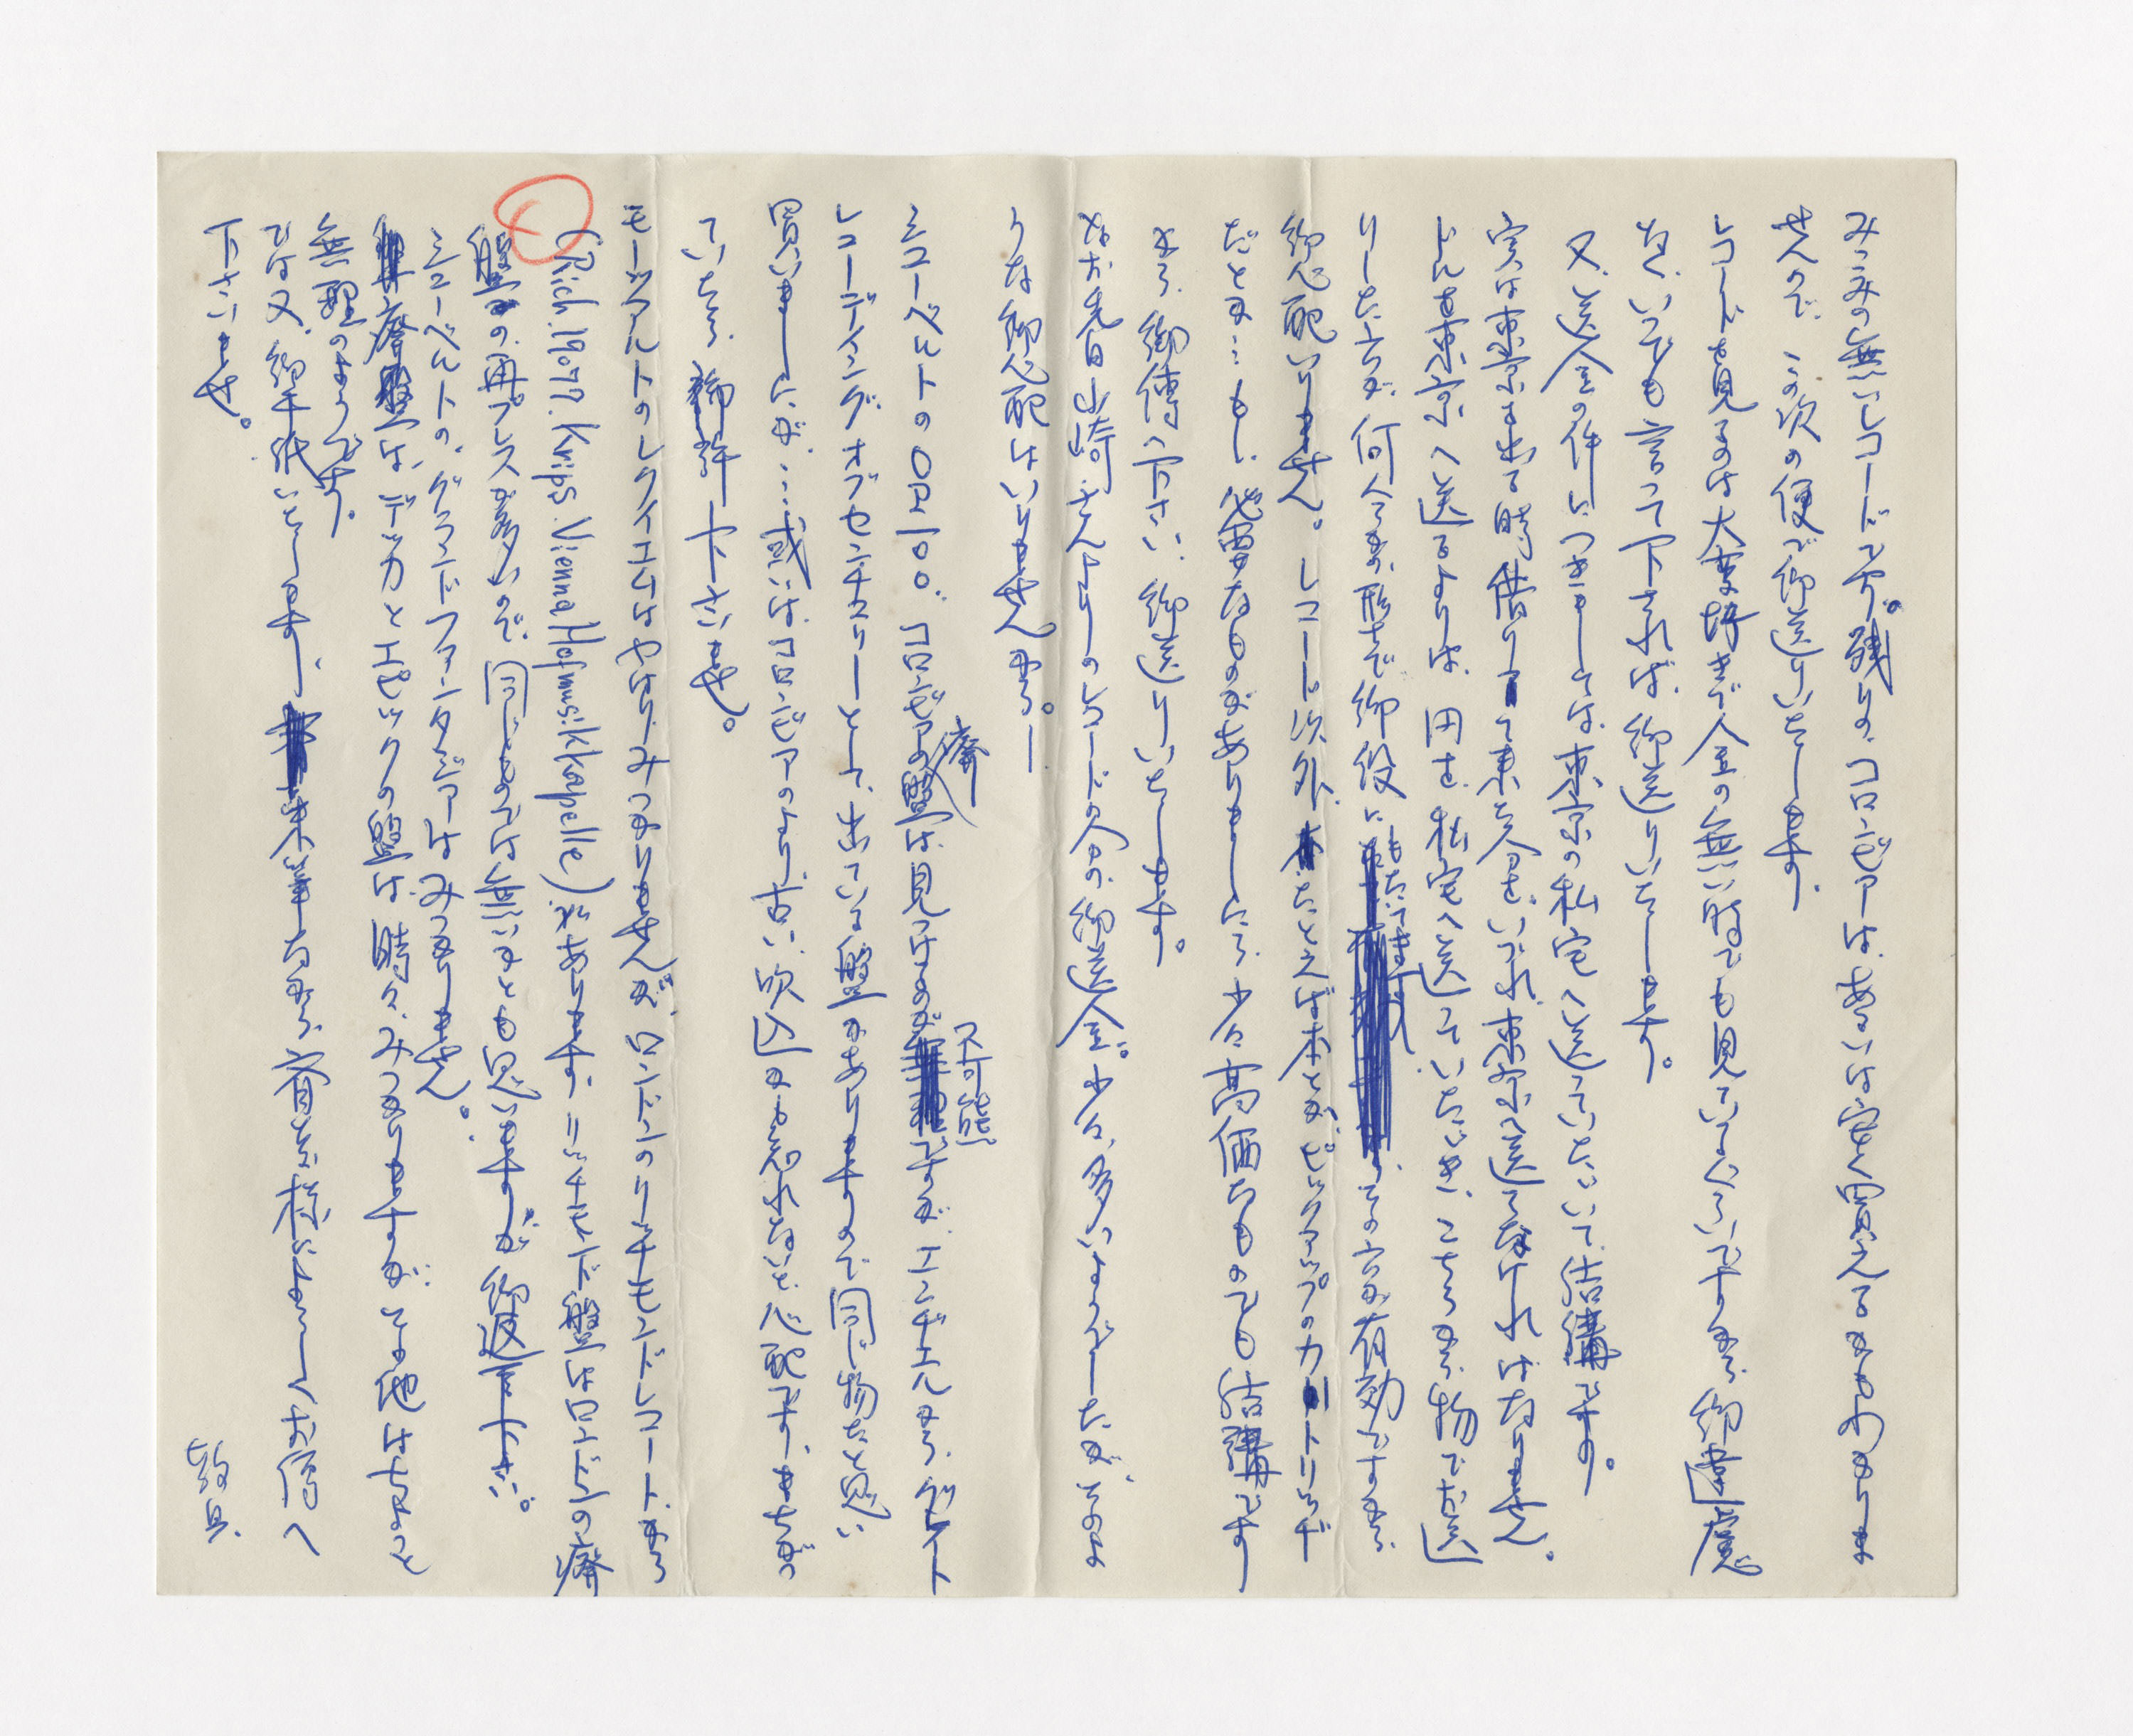 みつみの無いレコードです。残りの、コロンビアーは、あるいは安く買えるかわかりま
せんので、この次の便で御送りいたします。
レコードを見るのは大変好きで金の無い時でも見ているくらいですから御遠慮
なく、いつでも言って下されば、御送りいたします。
又、送金の件につきましては、東京の私宅へ送っていただいて結構です。
実は東京を出る時、借りて来た分ぜいぶ、東京に送らなければなりません。
としても東京へ送るよりは、円を私宅へ送っていただき、こちらから物でお送
りした方が、何分かの形で御役に立てますし、その方が有効ですから
御心配いりません。レコード以外、たとえば本とかピックアップのカートリッヂ
だとか…もし、必要なものがありましたら少々高価なものでも結構です
から、御傳へ下さい、御送りいたします。
なお先日山崎さんよりのレコードの分の御送金。少々、多いようでしたが、そのよ
うな御心配はいりませんから。―
シューベルトのOp.100. コロンビアの廃盤は見つけるのが不可能ですが、エンヂェルから、グレート
レコーディングオブセンチュリーとして、出ている盤がありますので同じ物だと思い
買いましたが……或いはコロンビアのより、古い吹込かも知れないと心配です、まちがっ
ていたら、御許し下さいませ。
モーツアルトのレクイエムはやはりみつかりませんが、ロンドンのリッチモンドレコードから
(Rich.19077. Krips. Vienna Hofmusikkapelle)があります、リッチモンド盤はロンドンの廃
盤の再プレスが多いので、同じものでは無いかとも思いますが、御返事下さい。
シューベルトの、グランドファンタジアーはみつかりません。
廃盤は、デッカとエピックの盤は時々みつかりますが、その他はちょっと
無理のようです。
では又、御手紙いたします、
下さいませ。
敬具.